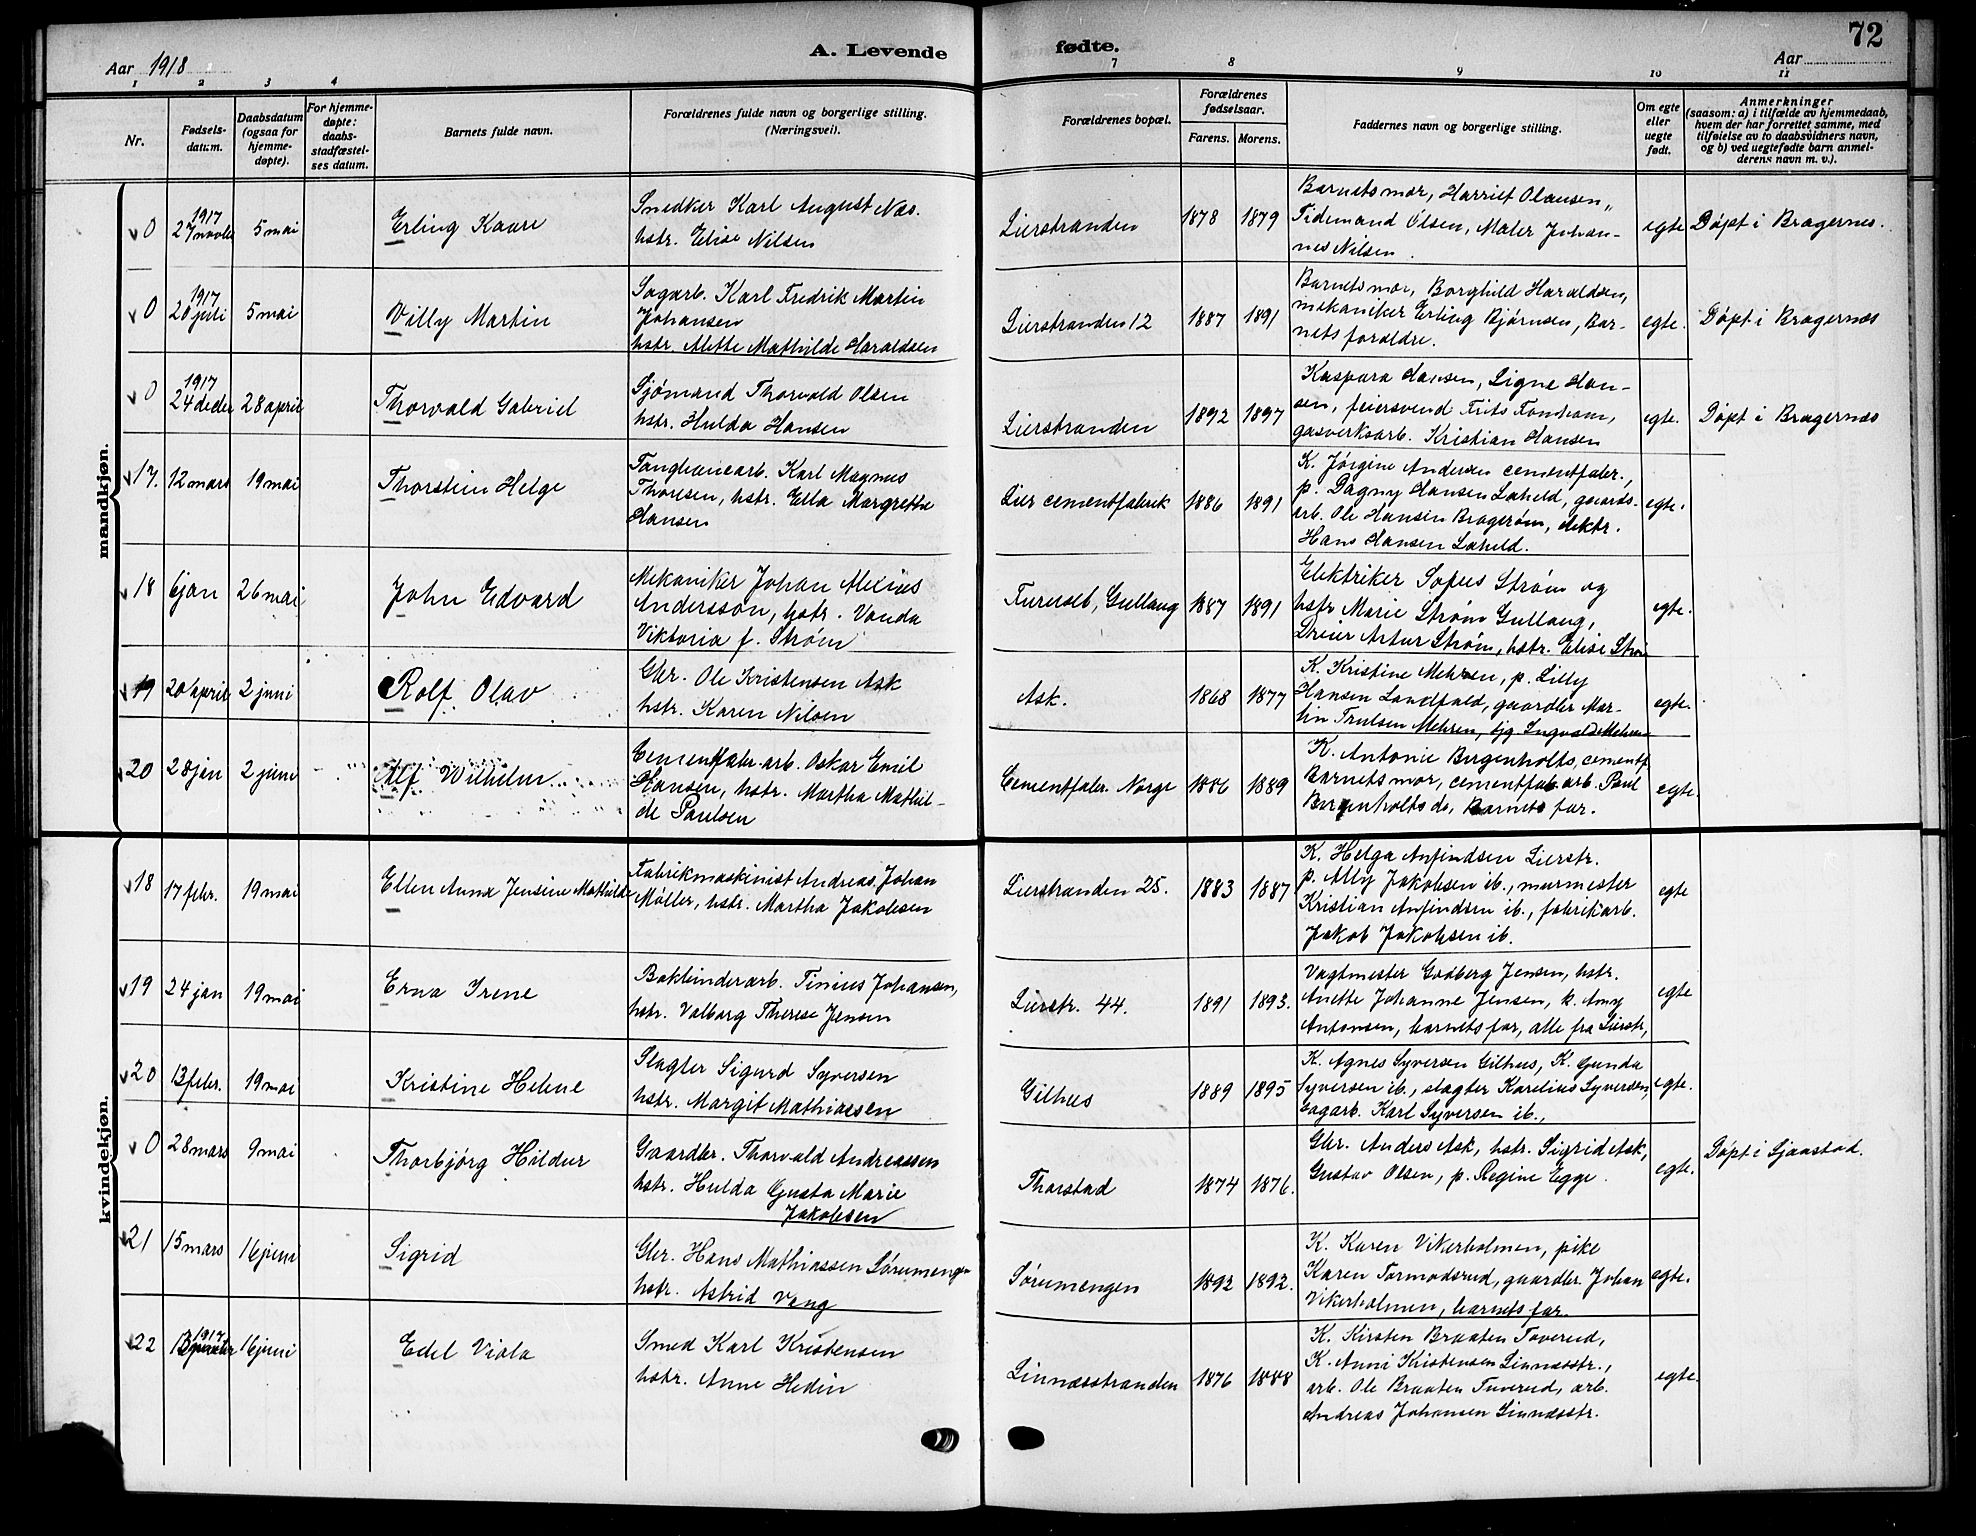 72
A. Levende fødte.
Aar 1918
Aar
1 2 3 4 7 8 9 10 11
Nr.
Fødsels-
datum.
Daabsdatum
(ogsaa for
hjemme-
døpte).
For hjemme-
døpte:
daabs-
stadfæstel-
ses datum.
Barnets fulde navn.
Forældrenes fulde navn og borgerlige stilling.
(Næringsvei).
Forældrenes bopæl.
Forældrenes
fødselsaar.
Farens. Morens.
Faddernes navn og borgerlige stilling.
Om egte
eller
uegte
født.
Anmerkninger
(saasom: a) i tilfælde av hjemmedaab,
hvem der har forrettet samme, med
tilføielse av to daabsvidners navn,
og b) ved uegtefødte barn anmel-
derens navn m. v.).
mandkjøn.
0
1917
27 novbr
5 mai
Erling Kaare
Snedker Karl August Næs.
hstr. Elise Nilsen
Lierstranden
1878 1879
Barnets mor, Harriet Olausen,
Tidemand Olsen, Maler Johan-
nes Nilsen.
egte
Døpt i Bragernes.
0
1917
20 juli
5 mai
Villy Martin
Sagarb. Karl Fredrik Martin
Johansen
hstr. Alette Mathilde Haraldsen
Lierstranden 12
1887 1891
Barnets mor, Borghild Haraldsen,
mekaniker Erling Bjørnsen, Bar-
nets forældre.
egte.
Døpt i Bragernæs
0
1917
24 decbr
28 april
Thorvald Gabriel
Sjømand Thorvald Olsen
hstr. Hulda Hansen
Lierstranden
1892 1897
Kaspara Hansen, Signe Han-
sen, feiersvend Frits
gasverksarb. Kristian Hansen
egte.
Døpt i Bragernæs
17.
12 mars
19 mai
Thorstein Helge
Taugbanearb. Karl Magnus
Thoresen, hstr. Ella Margrethe
Hansen
Lier cementfabrik
1886 1891
K. Jørgine Andersen cementfabr.,
p. Dagny Hansen Løheld, gaards-
arb. Ole Hansen Bragerøen, elektr.
Hans Hansen Løheld.
egte.
18
6 jan
26 mai
John Edvard
Mekaniker Johan Alexius
Andersson, hstr. Vanda
Viktoria f. Strøm
Furuset, Gullaug
1887 1891
Elektriker Sofus Strøm og
hstr Marie Strøm Gullaug,
Dreier Artur Strøm, hstr. Elise Strøm
egte.
19
20 april
2 juni
Rolf Olav
Gbr. Ole Kristensen Ask
hstr. Karen Nilsen
Ask.
1868 1877
K. Kristine Mehren, p. Lilly
Hansen Landfald, gaardbr Mar-
tin Trulsen Mehren, Ingvald Mehren
egte.
20
28 jan
2 juni
Alf Wilhelm
Cementfabr. arb. Oskar Emil
Hansen, hstr. Martha Mathil-
de Paulsen
Cementfabr. Norge
1886 1889
K. Antonie Bergenholts, cementf
Barnets mor, cementfab. arb. Paul
Bergenholts do, Barnets far.
egte.
kvindekjøn.
18
17 febr.
19 mai
Ellen Anna Jensine Mathilde
Fabrikmaskinist Andreas Johan
Møller, hstr. Martha Jakobsen
Lierstranden 25.
1883 1887
K. Helga Anfindsen Lierstr.
p. Ally Jakobsen ib., murmester
Kristian Anfindsen ib., fabrikarb.
Jakob Jakobsen ib.
egte
19
24 jan
19 mai
Erna Irene
Bokbinderarb. Tinius Johansen,
hstr. Valborg Therese Jensen
Lierstr. 44.
1891 1893.
Vagtmester Godberg Jensen, hstr.
Anette Johanne Jensen, k. Amy
Antonsen, barnets far, alle fra Lierstr,
egte
20
13 febr.
19 mai
Kristine Helene
Slagter Sigurd Syversen
hstr. Margit Mathiassen
Gilhus
1889 1895
K. Agnes Syversen Gilhus, K. Gunda
Syversen ib., slagter Karelius Syversen,
Sagarb. Karl Syversen ib.,
egte.
0
28 mars
9 mai
Thorbjørg Hildur
Gaardbr. Thorvald Andreassen
hstr. Hulda Gusta Marie
Jakobsen
Thorstad
1874 1876.
Gbr. Anders Ask, hstr. Sigrid Ask,
Gustav Olsen, p. Regine Egge.
egte.
Døpt i Sjaastad.
21
15 mars
16 juni
Sigrid
Gbr. Hans Mathiassen Sørumengen
hstr. Astrid Vang
Sørumengen
1892 1892.
K. Karen Vikerholmen, pike
Karen Tormodsrud, gaardbr. Johan
Vikerholmen, barnets far.
egte.
22
1917
16 juni
Edel Viola
Smed Karl Kristensen
hstr. Anne Hedin
Linnæsstranden
1876 1888
K. Kirsten Braaten Tuverud,
K. Anni Kristensen Linnæsstr.,
arb. Ole Braaten Tuverud, arb.
Andreas Johansen Linnæsstr.
egte.